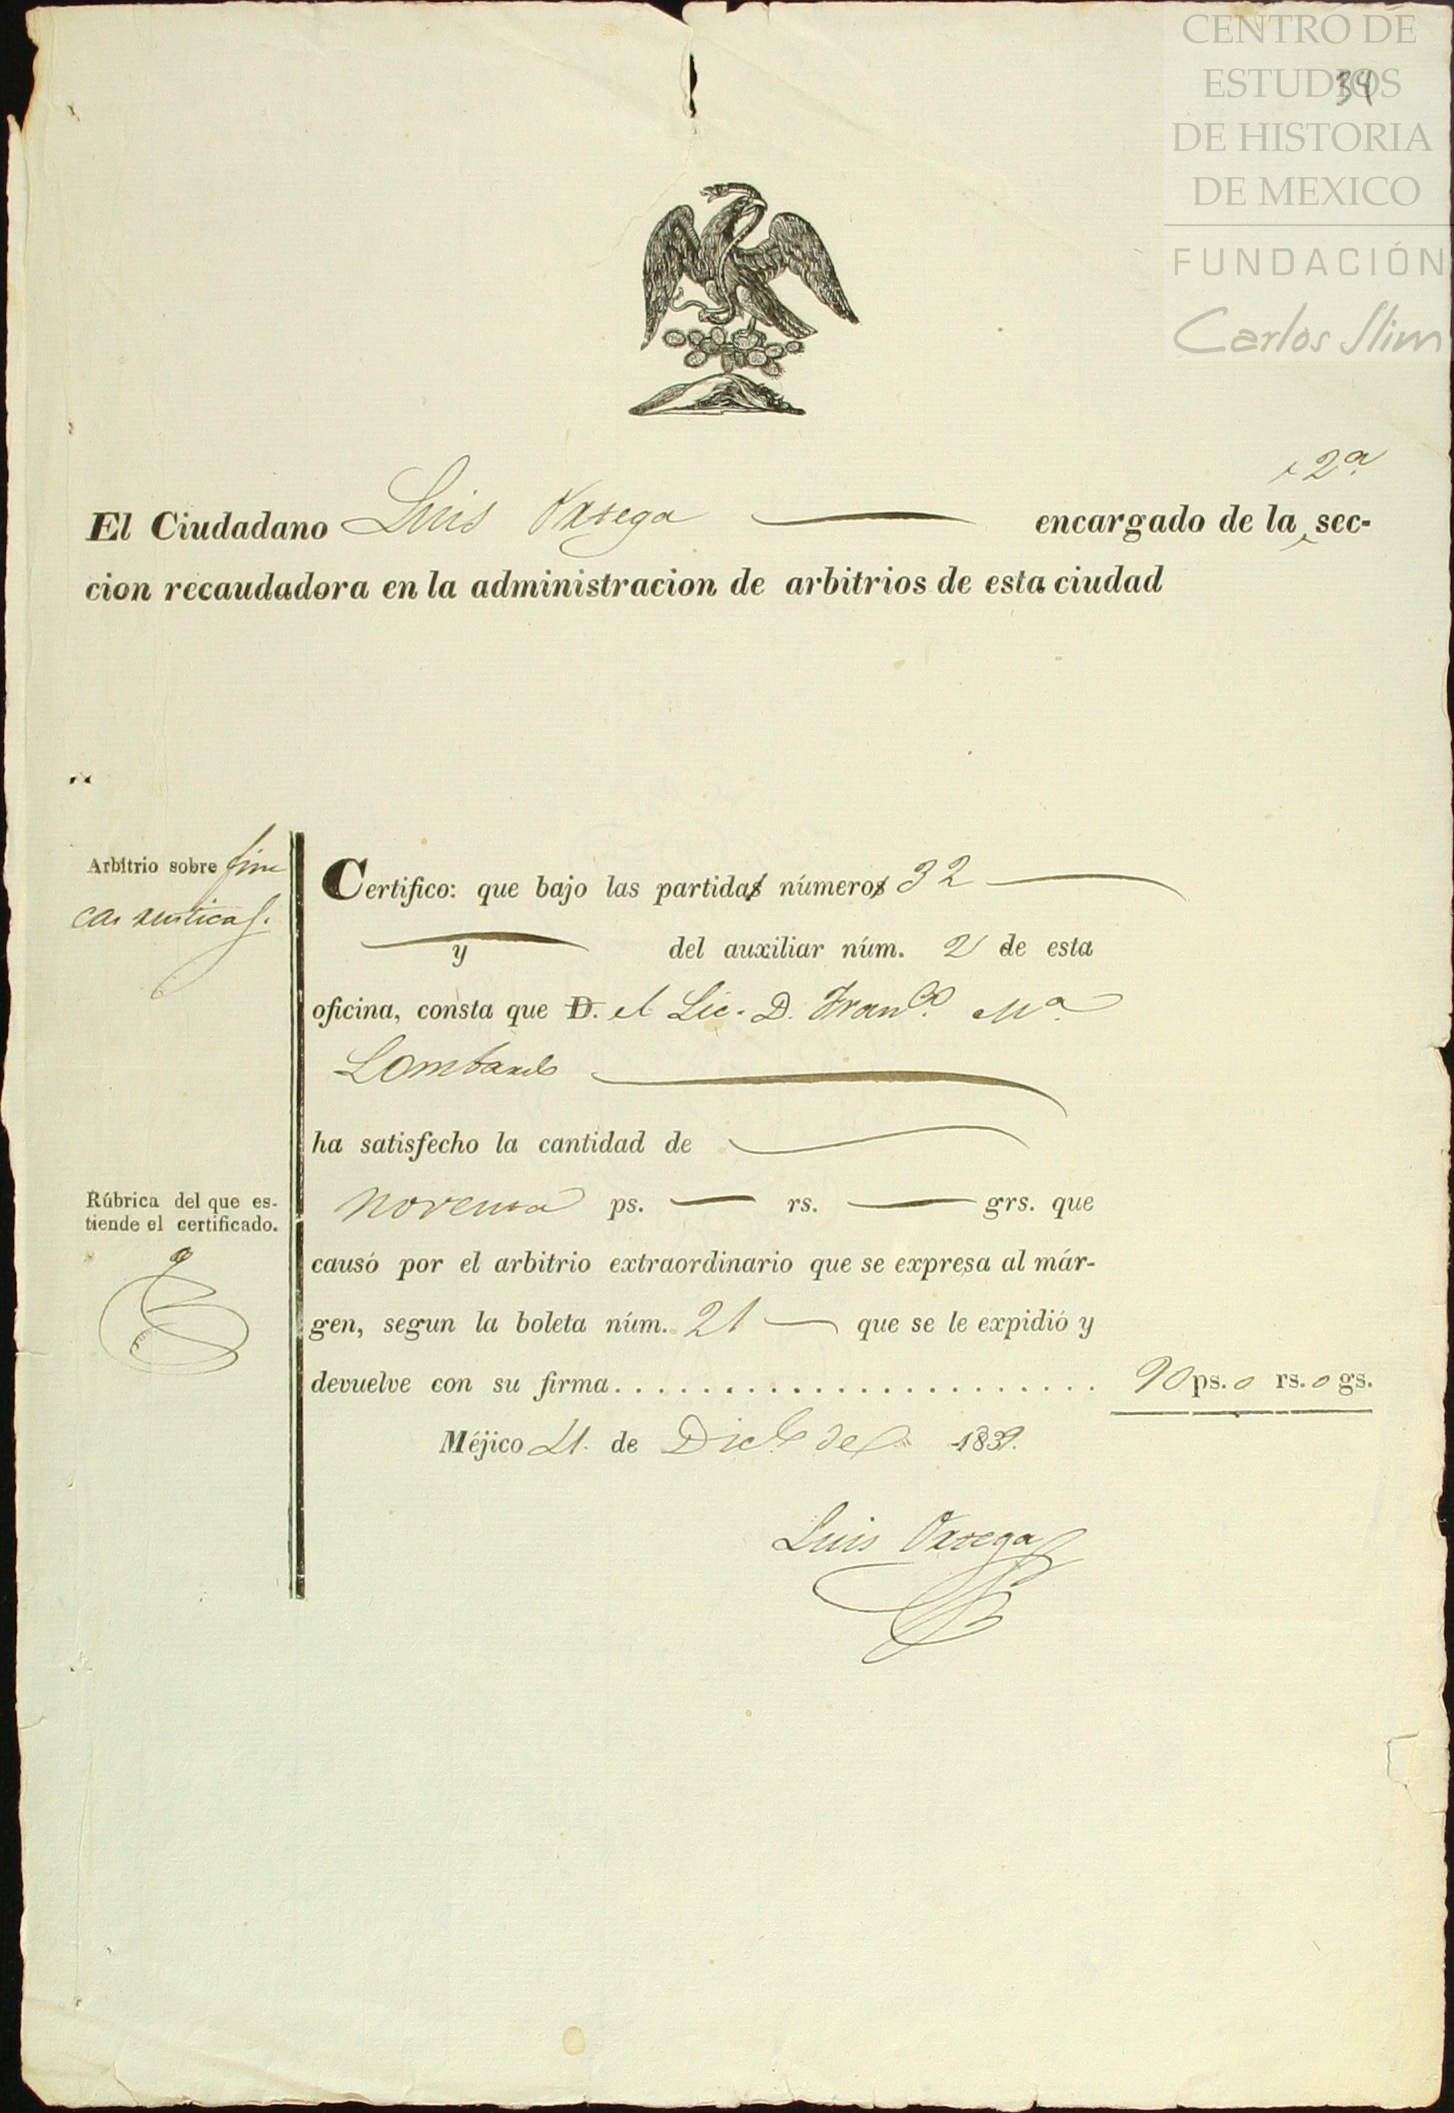 CENTRO DE
ESTUDIOS
DE HISTORIA
DE MEXICO
FUNDACIÓN
Carlos Slim
34
2ª
El Ciudadano Luis Ortega encargado de la sec-
cion recaudadora en la administracion de arbitrios de esta ciudad
Arbitrio sobre fin
cas rusticas.
Certifico: que bajo las partidas números 32
y del auxiliar núm. 2 de esta
oficina, consta que D. el Lic. D. Franco. Ma.
Lombardo
ha satisfecho la cantidad de
noventa ps. rs. grs. que
causó por el arbitrio extraordinario que se expresa al már-
gen, segun la boleta núm. 21 que se le expidió y
devuelve con su firma...................... 90 ps. 0 rs. 0 gs.
Rúbrica del que es-
tiende el certificado.
Méjico 21. de Dicbe de 1839.
Luis Ortega